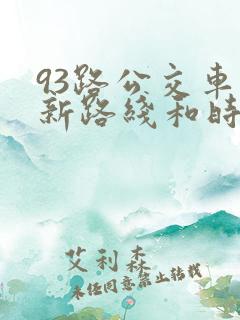 93路公交车
新路线和时
艾利森
未经同意禁止转载